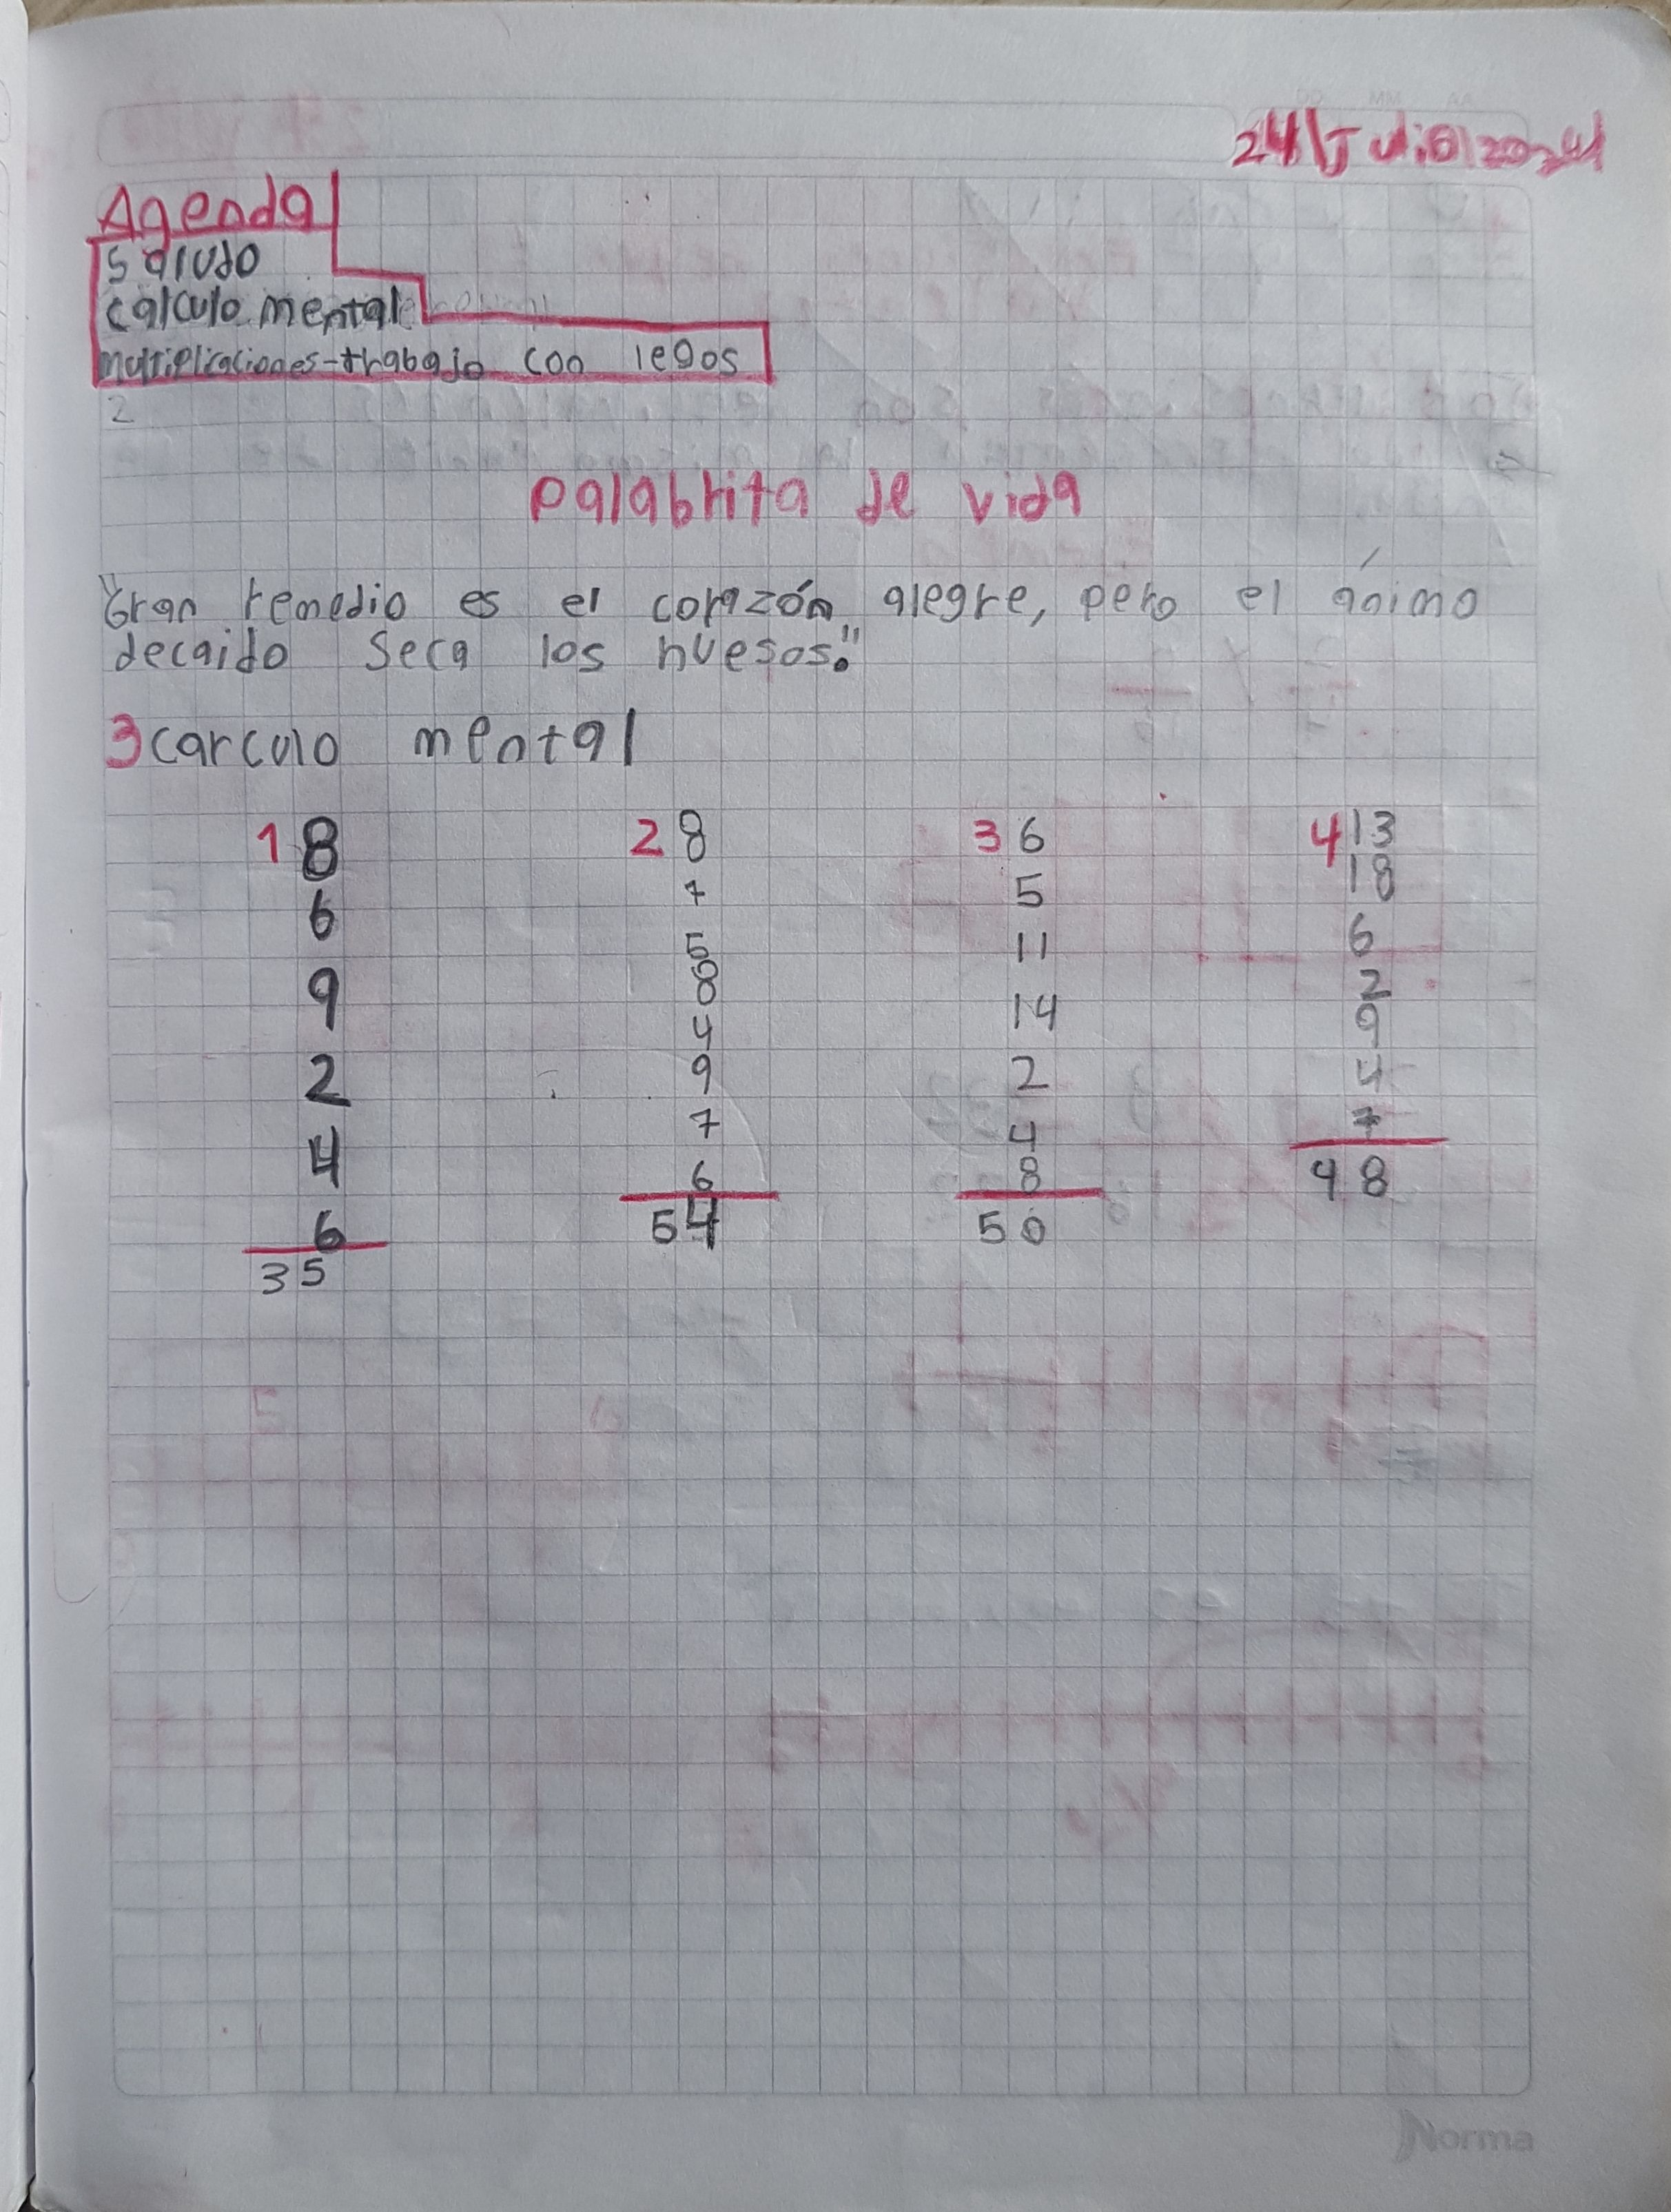 DD MM AA
24/Julio/2024
Agenda
Saludo
calculo mental
multiplicaciones-trabajo con legos
2
Palabrita de vida
"Gran remedio es el corazón alegre, pero el ánimo
decaido seca los huesos."
3 carculo mental
1 8 2 8 3 6 4 13
6 7 5 18
9 5 11 6
2 8 14 2
4 4 2 9
6 9 4 4
35 7 8 7
6 50 48
54
Norma